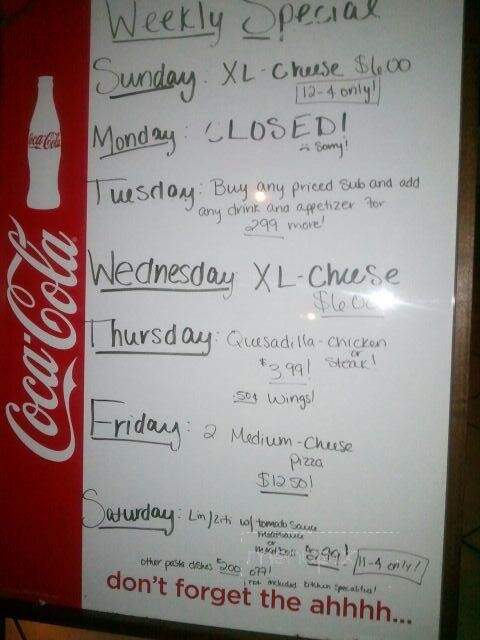 Weekly Special
Sunday: XL-Cheese $6.00
12-4 only!
Monday: CLOSED!
Sorry!
Tuesday: Buy any priced sub and add
any drink and appetizer for
2.99 more!
Wednesday XL-Cheese
$6.00
Thursday: Quesadilla-chicken
or
$3.99! Steak!
.50¢ Wings!
Friday: 2 Medium-Cheese
Pizza
$12.50!
Saturday: Lin/Ziti w/ tomato sauce
meatsauce
or
meatball 99! 11-4 only!
other pasta dishes $2.00 off!
not included kitchen specialties!
don't forget the ahhhh...
Coca-Cola
Coca-Cola